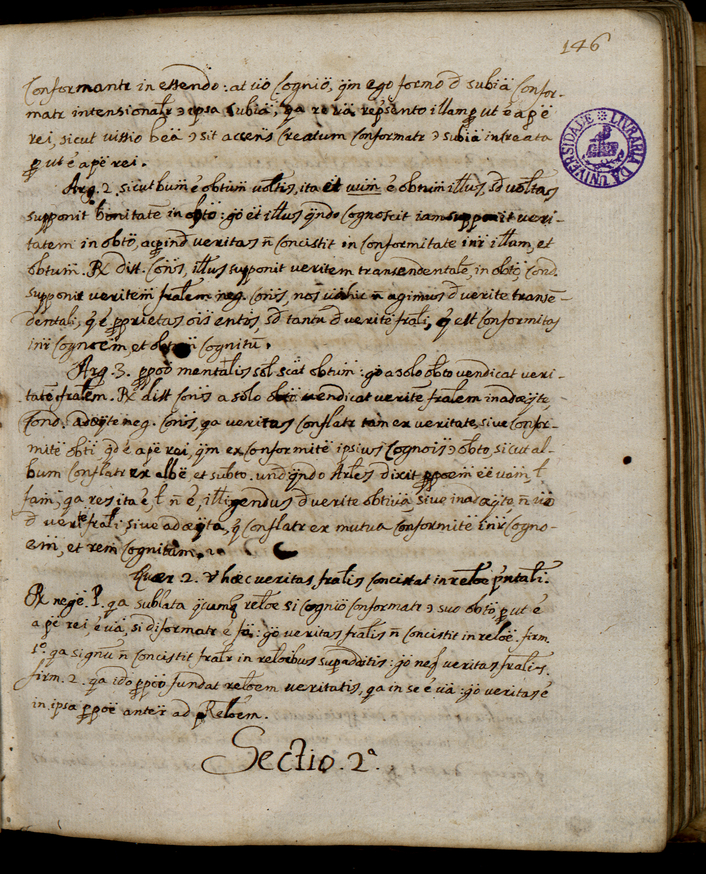 146
Conformantr in essendo: at vò Cogniö, qm ego formo d subia Confor-
matr intensionalr ipsa subia, qa re va represento illam put e a pe
rei, sicut vissio bea sit accens Creatum Conformatr subia increata
put e a pe rei.
Arg. 2. sicut bum e obtum voltis, ita et vum e obtum illus, sd voltas
supponit bonitate in obto: go et illus qndo Cognoscit iam supponit veri-
tatem in obto, ac pind veritas n Concistit in Conformitate inr illam, et
obtum. R dist. Cons, illus supponit veritem transendentale, in obto, Cond.
supponit veritem fralem neg. Cons, nos hic n agimus d verite transe-
dentali, q e pprietas ois entis, sd tantu d verite frali, q est Conformitas
inr Cognoem, et obtum Cognitu.
Arg. 3. ppoo mentalis sol. scat obtum: go a solo obto vendicat veri-
tate fralem. R dist Cons a solo obto vendicat verite fralem inadæqte,
Cond. adæqte neg. Cons, qa veritas Conflatr tam ex veritate, sive Confor-
mite obti qd e a pe rei, qm ex Conformite ipsius Cognois obto, sicut al-
bum Conflatr ex albe et subto. und qndo Arles dixit ppoem ee vam, l
fam, qa res ita e, l n e, illigendus d verite obtiva sive inadæqta, n vò
d verite frali sive adæqta, q Conflatr ex mutua Conformite inr Cogno-
em, et rem Cognitam.
Quær 2. hæc veritas fralis Concistat in reloe pntali.
R nege. P. qa sublata quamq reloe si cognio Conformatr suo obto put e
a pe rei e va, si diformatr e fa: go veritas fralis n Concistit in reloe. firm.
1o qa signu n Concistit fralr in reloibus supadditis: go neq veritas fralis.
firm. 2. qa ido ppoo fundat reloem veritatis, qa in se e va: go veritas e
in ipsa ppoe anter ad Reloem.
Sectio. 2a.
LIVRARIA DA UNIVERSIDADE